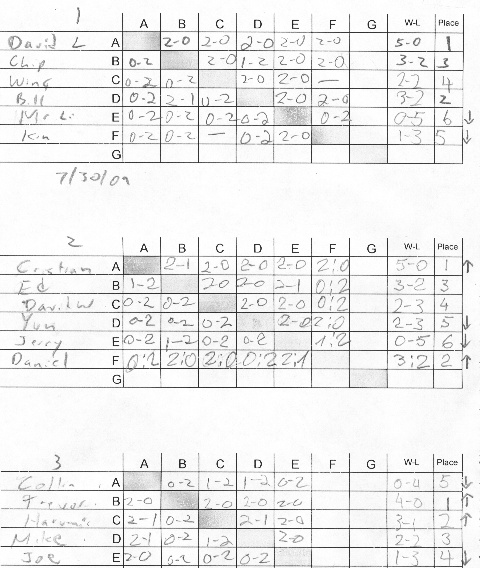 1
A B C D E F G W-L Place
David L A 2-0 2-0 2-0 2-0 2-0 5-0 1
Chip B 0-2 2-0 1-2 2-0 2-0 3-2 3
Wing C 0-2 0-2 2-0 2-0 — 2-2 4
Bill D 0-2 2-1 0-2 2-0 2-0 3-2 2
Mr Li E 0-2 0-2 0-2 0-2 0-2 0-5 6 ↓
Kin F 0-2 0-2 — 0-2 2-0 1-3 5 ↓
G
7/30/09
2
A B C D E F G W-L Place
Cristian A 2-1 2-0 2-0 2-0 2:0 5-0 1 ↑
Ed B 1-2 2-0 2-0 2-1 0:2 3-2 3
David W C 0-2 0-2 2-0 2-0 0:2 2-3 4
Yun D 0-2 0-2 0-2 2-0 2:0 2-3 5 ↓
Jerry E 0-2 1-2 0-2 0-2 1:2 0-5 6 ↓
Daniel F 0:2 2:0 2:0 0:2 2:1 3:2 2 ↑
G
3
A B C D E F G W-L Place
Collin A 0-2 1-2 1-2 0-2 0-4 5 ↓
Trevor B 2-0 2-0 2-0 2-0 4-0 1 ↑
C 2-1 0-2 2-1 2-0 3-1 2 ↑
Mike D 2-1 0-2 1-2 2-0 2-2 3
Joe E 2-0 0-2 0-2 0-2 1-3 4 ↓